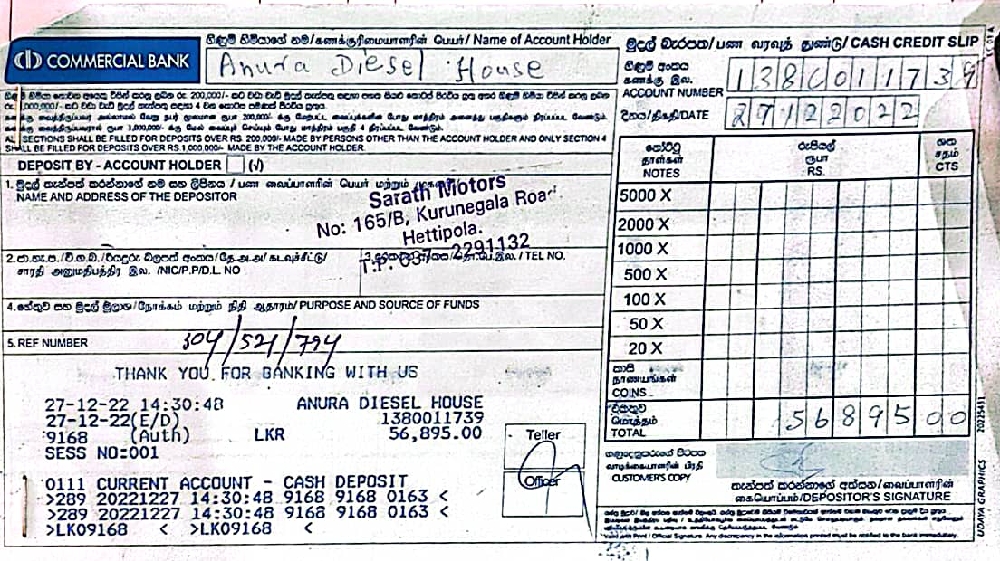 COMMERCIAL BANK
ගිණුම් හිමියාගේ නම/கணக்குரிமையாளரின் பெயர்/ Name of Account Holder
Anura Diesel House
මුදල් බැරපත/பண வரவுத் துண்டு/CASH CREDIT SLIP
ගිණුම් අංකය
கணக்கு இல.
ACCOUNT NUMBER
1380011739
දිනය/திகதி/DATE
27122022
ALL SECTIONS SHALL BE FILLED FOR DEPOSITS OVER RS. 200,000/- MADE BY PERSONS OTHER THAN THE ACCOUNT HOLDER AND ONLY SECTION 4
SHALL BE FILLED FOR DEPOSITS OVER RS.1,000,000/- MADE BY THE ACCOUNT HOLDER.
DEPOSIT BY - ACCOUNT HOLDER (√)
1. මුදල් තැන්පත් කරන්නාගේ නම සහ ලිපිනය / பண வைப்பாளரின் பெயர் மற்றும்
NAME AND ADDRESS OF THE DEPOSITOR
Sarath Motors
No: 165/B, Kurunegala Road
Hettipola.
T.P. 037-2291132
சாரதி அனுமதிபத்திர இல. /NIC/P.P/D.L. NO
/TEL NO.
4. හේතුව සහ මුදල් මූලාශ්‍ර/நோக்கம் மற்றும் நிதி ஆதாரம்/ PURPOSE AND SOURCE OF FUNDS
5. REF NUMBER
304/521/794
නෝට්ටු
தாள்கள்
NOTES
රුපියල්
ரூபா
RS.
ශත
சதம்
CTS
5000 X
2000 X
1000 X
500 X
100 X
50 X
20 X
කාසි
நாணயங்கள்
COINS
එකතුව
மொத்தம்
TOTAL
56895 00
THANK YOU FOR BANKING WITH US
27-12-22 14:30:48 ANURA DIESEL HOUSE
27-12-22(E/D) 1380011739
9168 (Auth) LKR 56,895.00
SESS NO:001
Teller
Officer
0111 CURRENT ACCOUNT - CASH DEPOSIT
>289 20221227 14:30:48 9168 9168 0163 <
>289 20221227 14:30:48 9168 9168 0163 <
>LK09168 < >LK09168 <
வாடிக்கையாளரின் பிரதி
CUSTOMERS COPY
තැන්පත් කරන්නාගේ අත්සන/வைப்பாளரின்
கையொப்பம்/DEPOSITOR'S SIGNATURE
UDAYA GRAPHICS